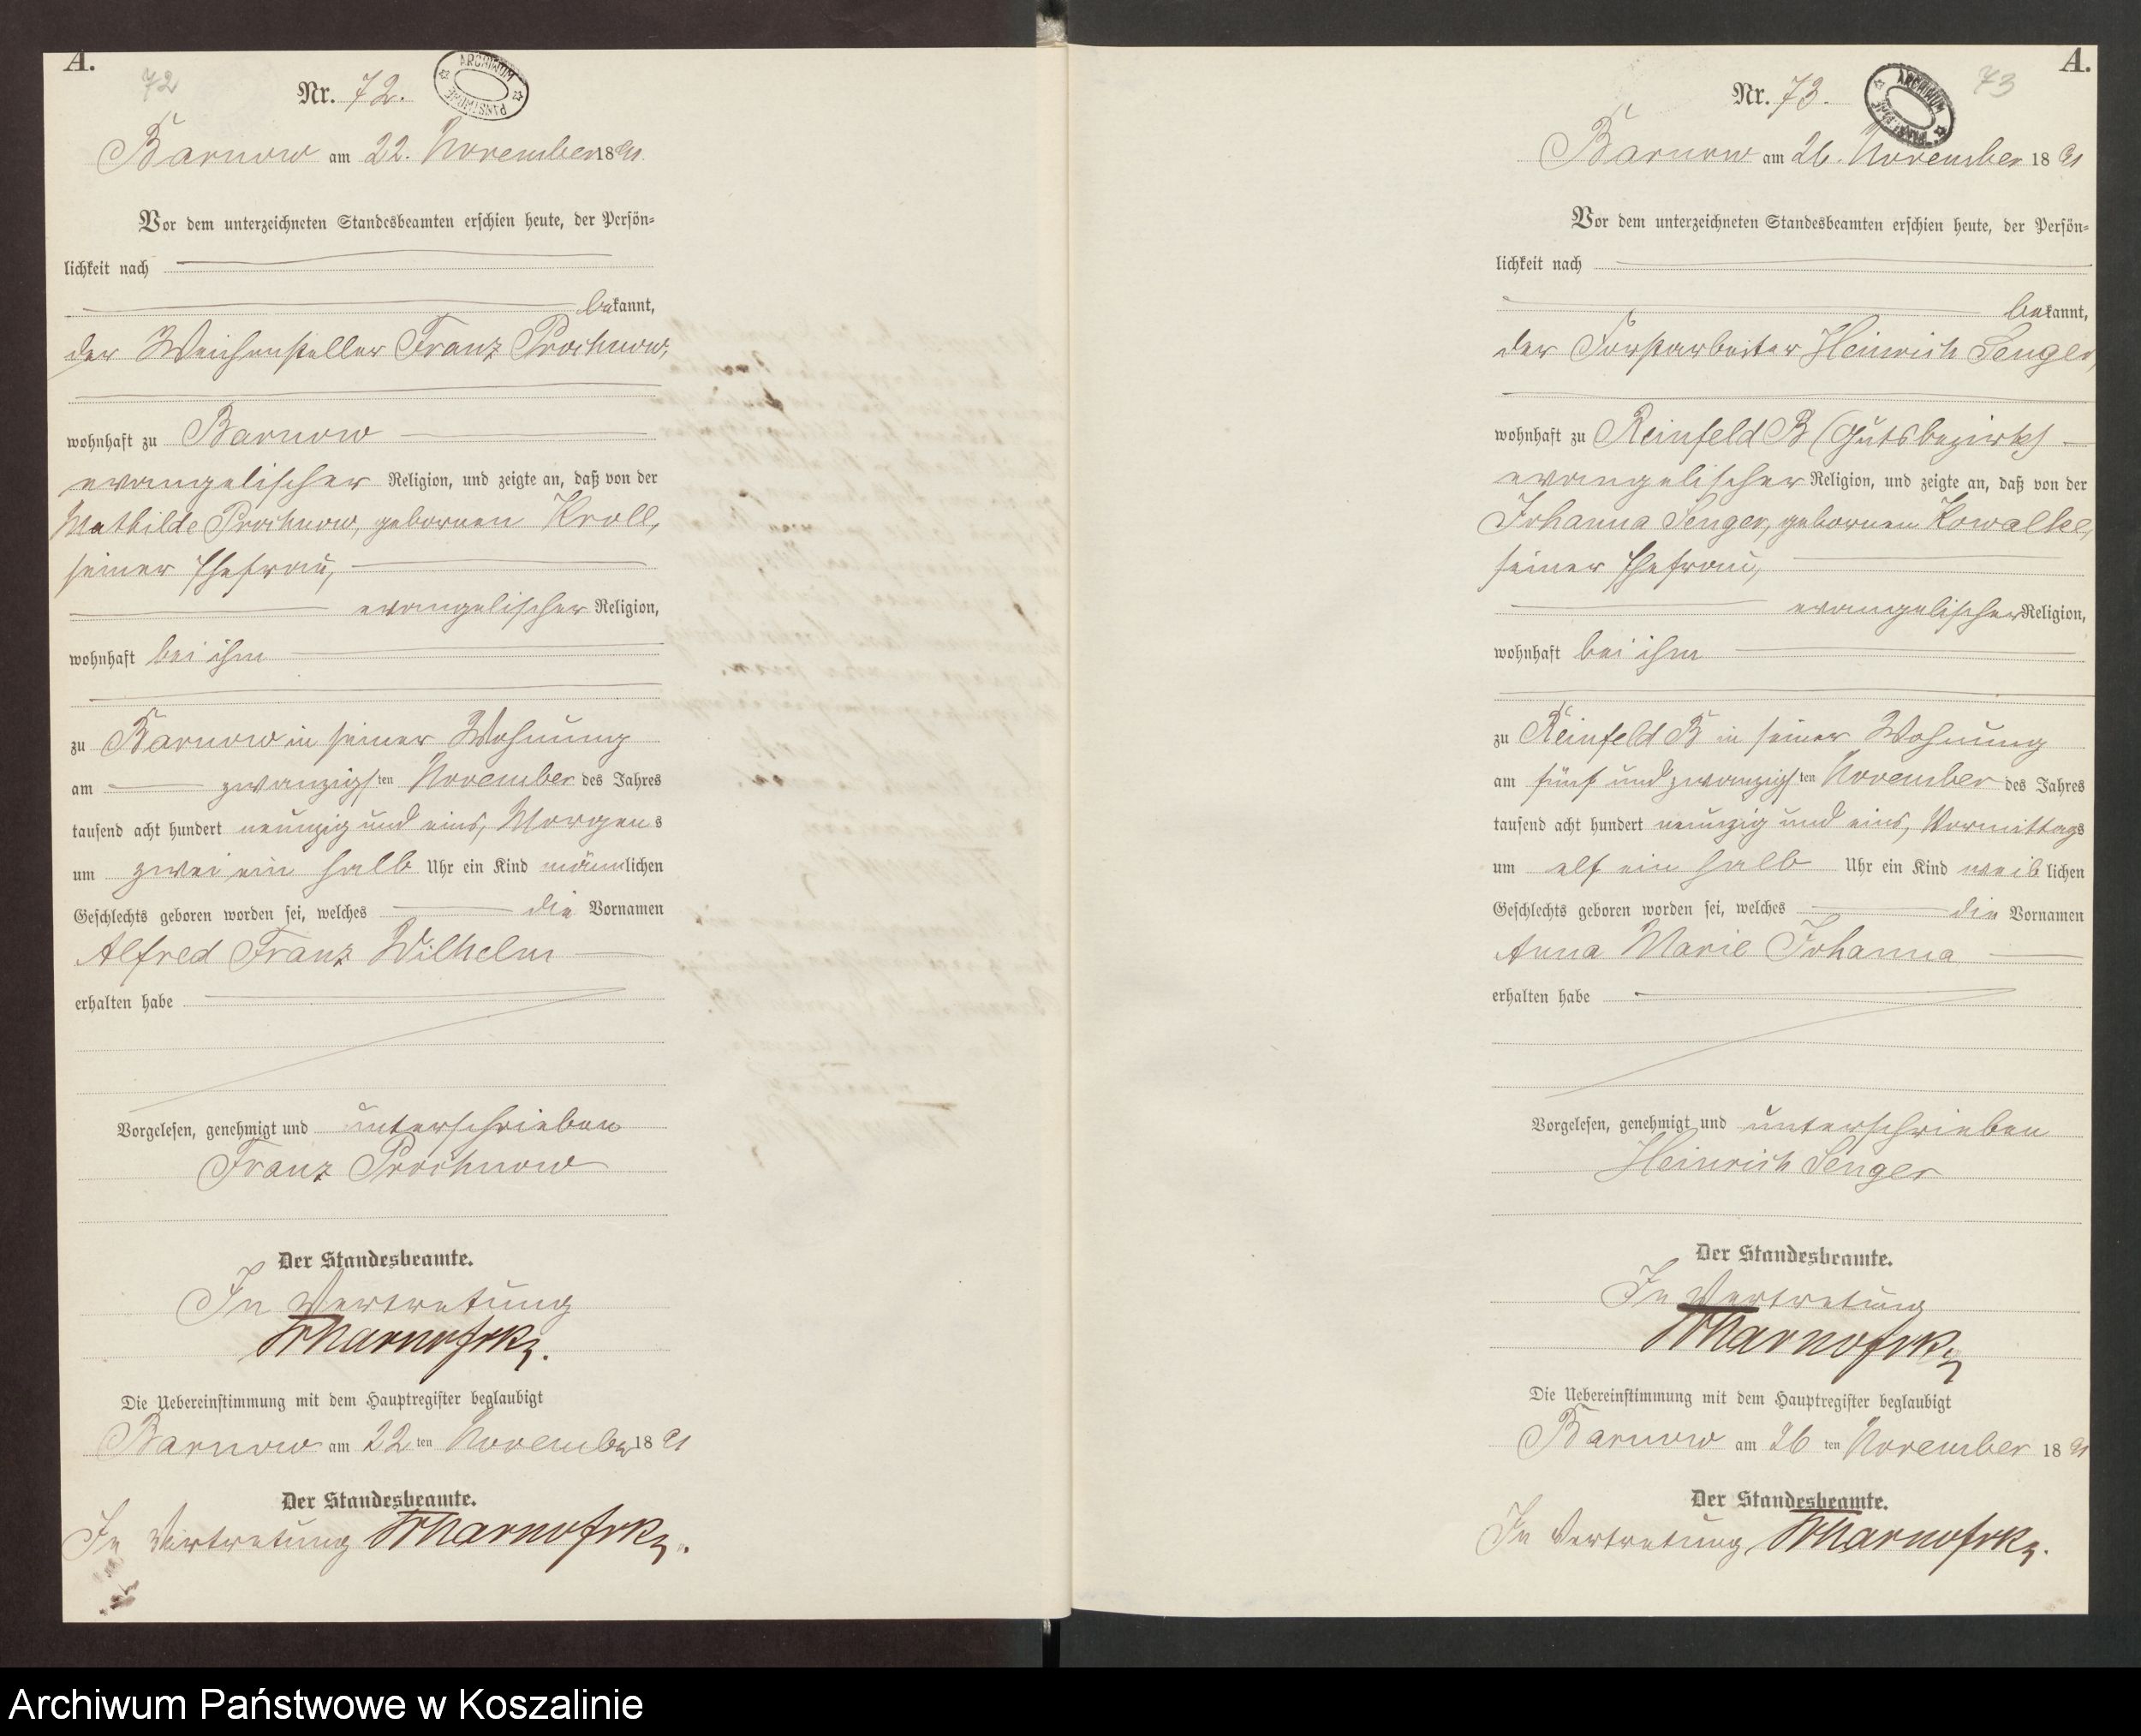 A.
72
Nr. 72.
ARCHIWUM PAŃSTWOWE
Barnow am 22. November 1891.
Vor dem unterzeichneten Standesbeamten erschien heute, der Persön-
lichkeit nach
bekannt,
der Weichensteller Franz Prochnow,
wohnhaft zu Barnow
evangelischer Religion, und zeigte an, daß von der
Mathilde Prochnow, geborenen Kroll,
seiner Ehefrau,
evangelischer Religion,
wohnhaft bei ihm
zu Barnow in seiner Wohnung
am zwanzigsten November des Jahres
tausend acht hundert neunzig und eins, Morgens
um zwei ein halb Uhr ein Kind männlichen
Geschlechts geboren worden sei, welches die Vornamen
Alfred Franz Wilhelm
erhalten habe
Vorgelesen, genehmigt und unterschrieben
Franz Prochnow
Der Standesbeamte.
In Vertretung
Die Uebereinstimmung mit dem Hauptregister beglaubigt
Barnow am 22ten November 1891
Der Standesbeamte.
In Vertretung
A.
73
Nr. 73.
ARCHIWUM PAŃSTWOWE
Barnow am 26. November 1891
Vor dem unterzeichneten Standesbeamten erschien heute, der Persön-
lichkeit nach
bekannt,
der Forstarbeiter Heinrich Senger,
wohnhaft zu Reinfeld B (Gutsbezirk)
evangelischer Religion, und zeigte an, daß von der
Johanna Senger, geborenen Kowalke,
seiner Ehefrau,
evangelischer Religion,
wohnhaft bei ihm
zu Reinfeld B in seiner Wohnung
am fünf und zwanzigsten November des Jahres
tausend acht hundert neunzig und eins, Vormittags
um elf ein halb Uhr ein Kind weiblichen
Geschlechts geboren worden sei, welches die Vornamen
Anna Marie Johanna
erhalten habe
Vorgelesen, genehmigt und unterschrieben
Heinrich Senger
Der Standesbeamte.
In Vertretung
Die Uebereinstimmung mit dem Hauptregister beglaubigt
Barnow am 26ten November 1891
Der Standesbeamte.
In Vertretung
Archiwum Państwowe w Koszalinie